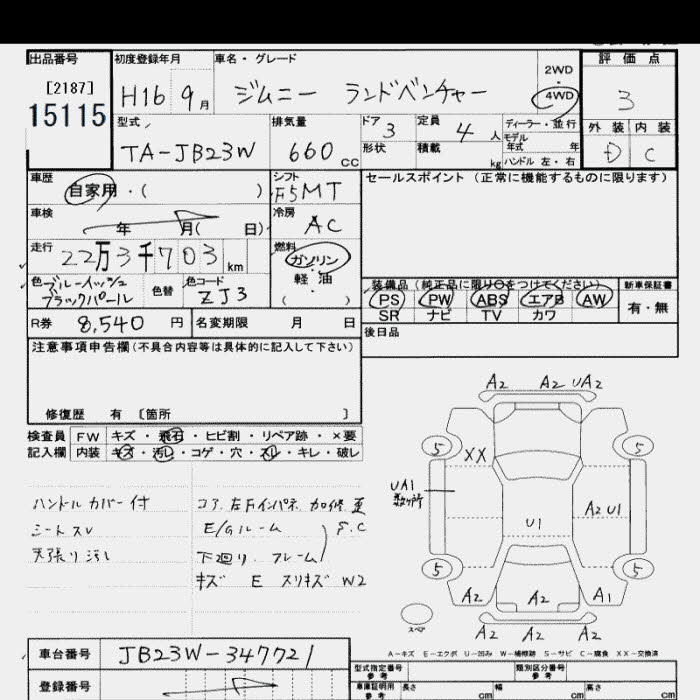 出品番号 初度登録年月 車名・グレード 評価点
[2187] 2WD
15115 H16 9月 ジムニー ランドベンチャー 4WD 3
型式 排気量 ドア 3 定員 4人 ディーラー・並行 外装 内装
モデル年式 年
TA-JB23W 660cc 形状 積載 kg ハンドル 左・右 D C
車歴 自家用・( ) シフト F5MT セールスポイント (正常に機能するものに限ります)
車検 年 月( 日) 冷房 AC
走行 22万3千703km 燃料 ガソリン
軽油
( )
色 ブルーイッシュ
ブラックパール 色替 色コード ZJ3 装備品 (純正品に限り○をつけてください) 新車保証書
PS PW ABS エアB AW 有・無
SR ナビ TV カワ
R券 8,540円 名変期限 月 日 後日品
注意事項申告欄 (不具合内容等は具体的に記入して下さい)
修復歴 有 〔箇所 〕
検査員 FW キズ・飛石・ヒビ割・リペア跡・×要
記入欄 内装 キズ・汚レ・コゲ・穴・スレ・キレ・破レ
ハンドルカバー付
シートスレ
天張り汚レ
コア 左Fインパネ 加修歪
E/Gルーム S.C
下廻り フレーム
キズ E スリキズ W2
A2 A2 UA2
5 XX 5
UA1
数ヶ所
A2 U1
U1
5 5
A2 A2 A1
スペア
A2 A2 A2
A-キズ E-エクボ U-凹み W-補修跡 S-サビ C-腐食 XX-交換済
車台番号 JB23W-347721
型式指定番号 参考 類別区分番号 参考
登録番号 車庫証明用 参考 長さ cm 幅 cm 高さ cm